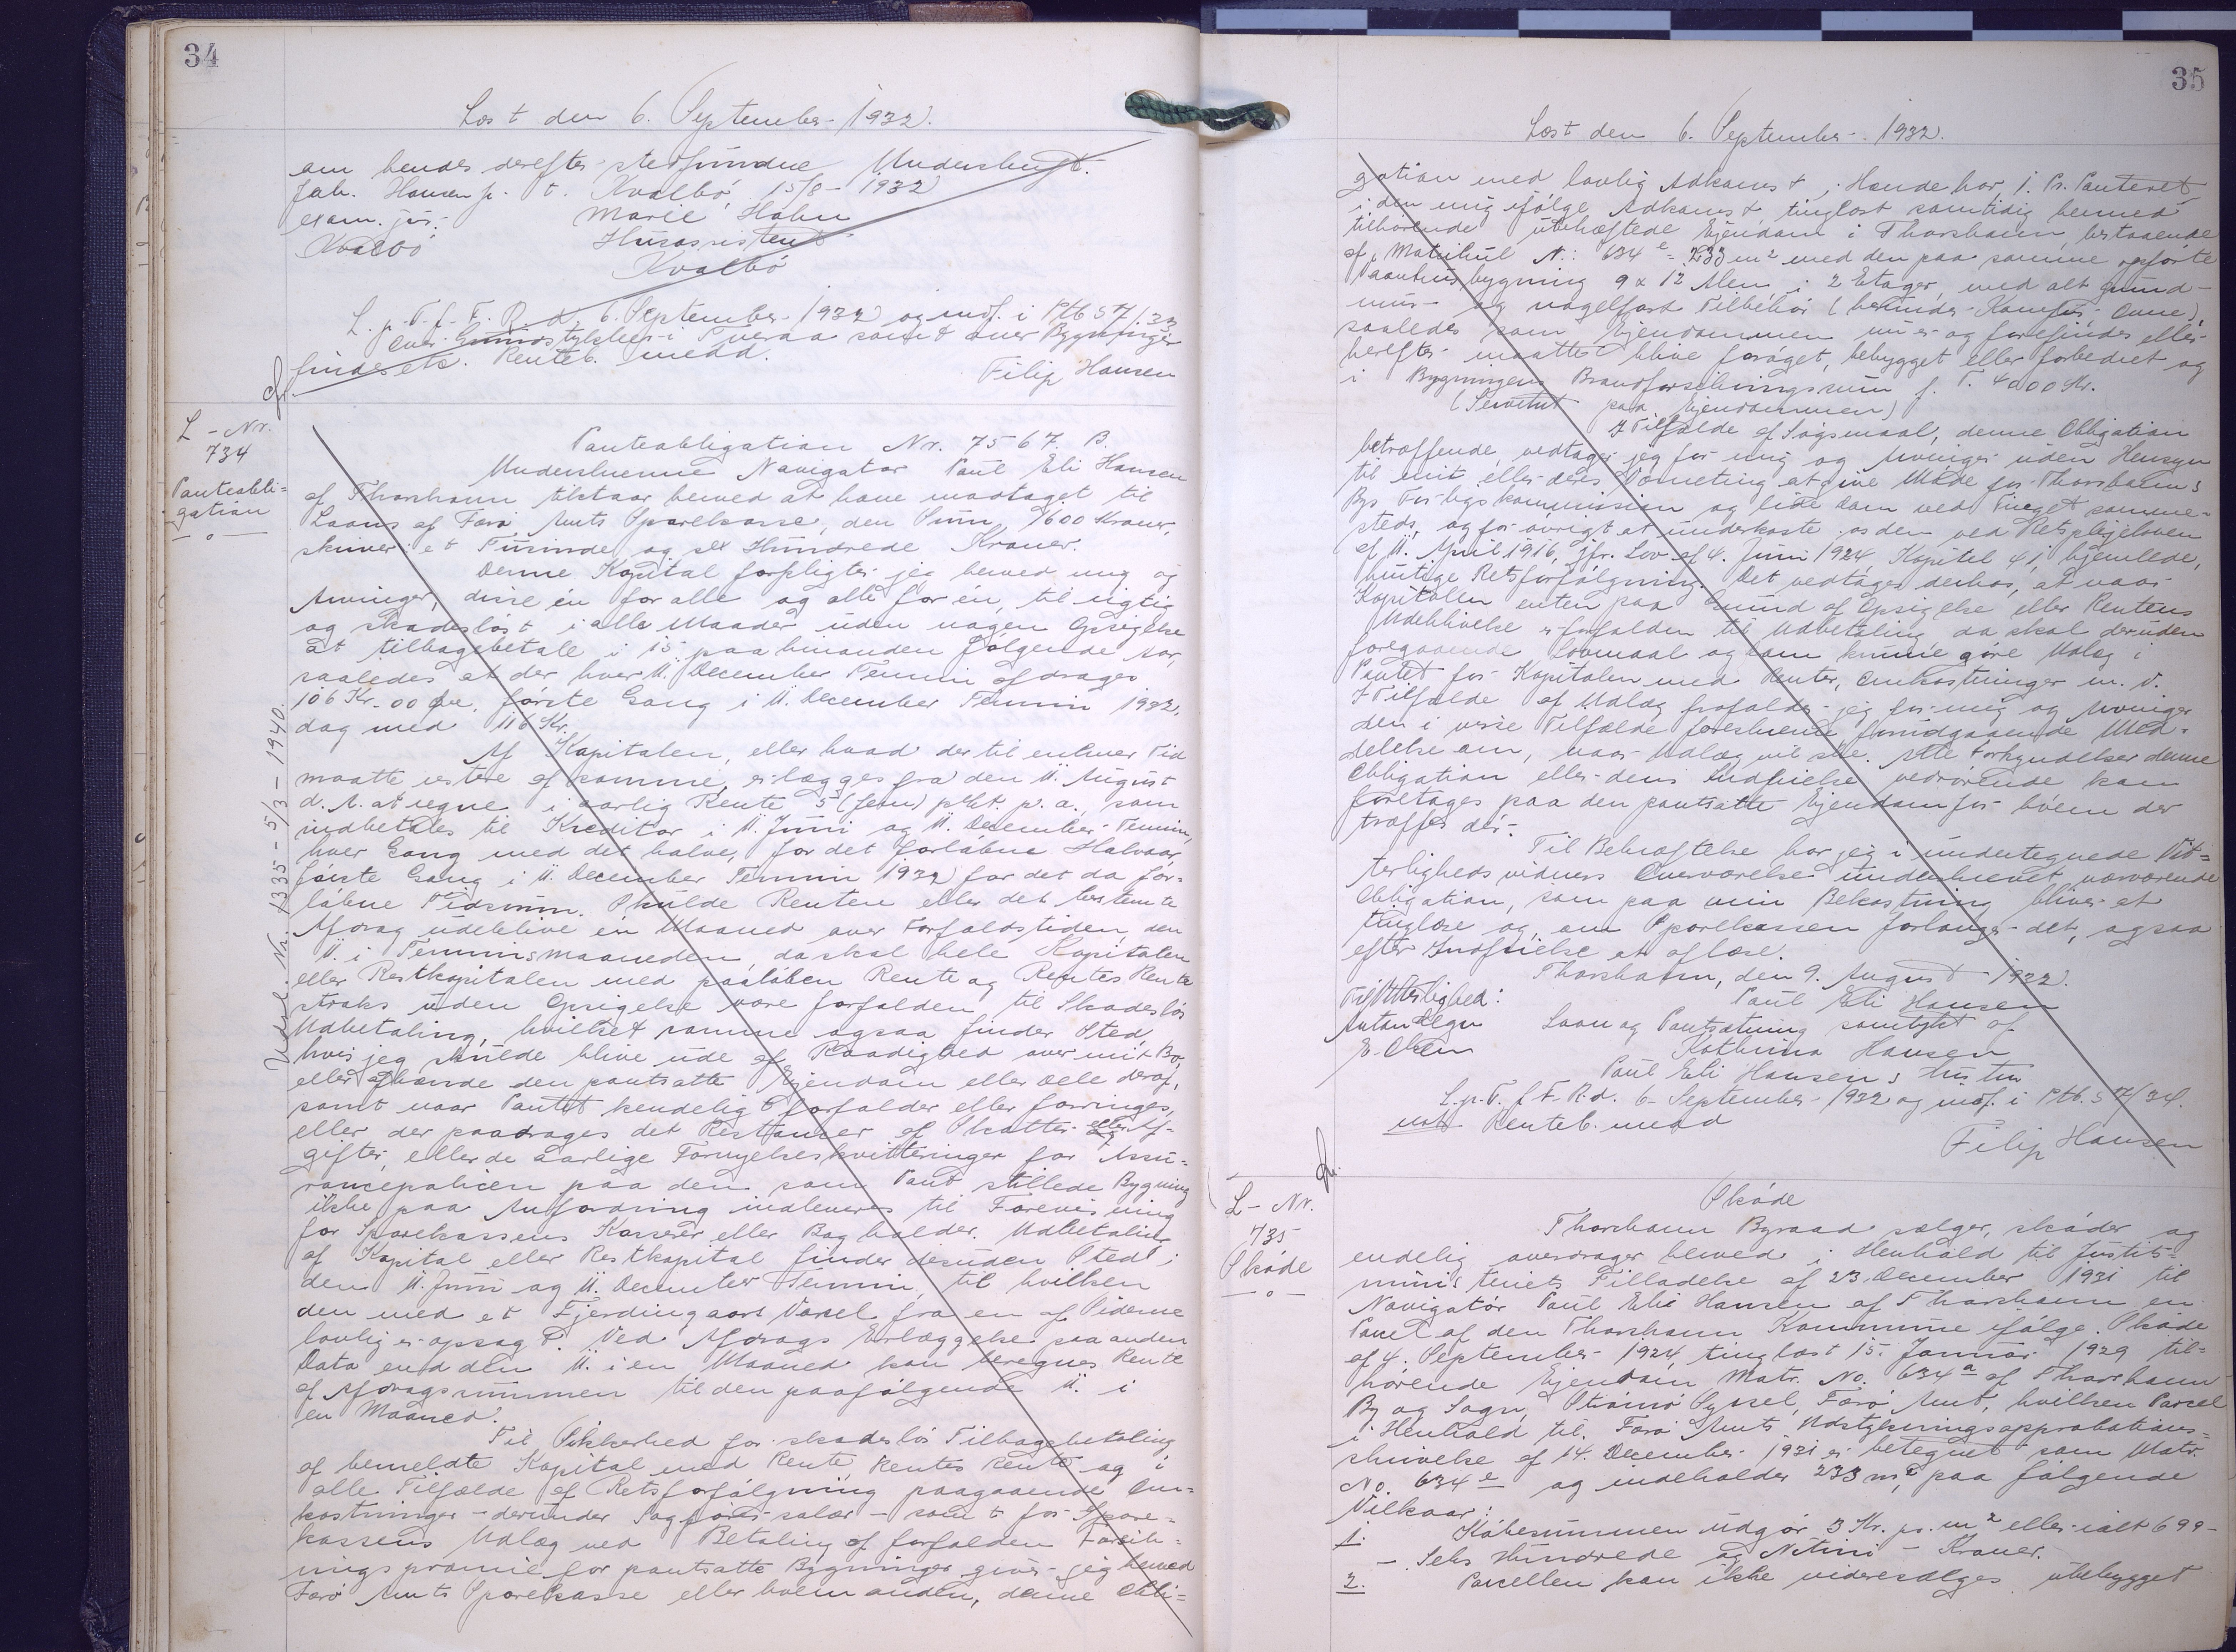 34
Læst den 6. September 1932.
om hendes derefter stedfundne Underskrift.
Jah. Hansen jr. t. Kvalbö, 15/8 - 1932
exam. jur. Marie Hahn
Kvalbö Husassistent
Kvalbö
L. p. T. f. F. R. d. 6. September 1932 og indf. i Ptb S 7/33
findes etc. Renteb. medd.
Filip Hansen
L - Nr.
734
Panteobli=
gation
Panteobligation Nr. 7567 B.
Underskrevne Navigatør Paul Eli Hansen
af Thorshavn tilstaar herved at have modtaget til
Laans af Færø Amts Sparekasse, den Sum, 1600 Kroner,
skriver: et Tusinde og sex Hundrede Kroner.
Denne Kapital forpligter jeg herved mig og
Arvinger, disse én for alle og alle for én, til rigtig
og skadesløst i alle Maader uden nogen Opsigelse
at tilbagebetale i 15 paa hinanden følgende Aar,
saaledes at der hver 11. December Termin afdrages
106 Kr. 00 Øre, første Gang i 11. December Termin 1932,
dog med 116 Kr.
Af Kapitalen, eller hvad der til enhver Tid
maatte restere af samme, erlægges fra den 11. August
d. A. at regne i aarlig Rente 5 (fem) pCt. p. a., som
indbetales til Kreditor i 11. Juni og 11. December Termin,
hver Gang med det halve, for det forløbne Halvaar,
første Gang i 11. December Termin 1932 for det da for-
løbne Tidsrum. Skulde Renten eller det bestemte
Afdrag udeblive én Maaned over Forfaldstiden, den
11. i Terminsmaaneden, da skal hele Kapitalen
eller Restkapitalen med paaløben Rente og Rentes Rente
straks uden Opsigelse være forfalden til Skadesløs
Udbetaling, hvilket samme ogsaa finder Sted,
hvis jeg skulde blive ude af Raadighed over mit Bo,
eller afhænde den pantsatte Ejendom eller Dele deraf,
samt naar Pantet kendeligt forfalder eller forringes,
eller der paadrages det Restancer af Skatter eller Af-
gifter, eller de aarlige Fornyelseskvitteringer for Assu=
rancepolicen paa den som Pant stillede Bygning
ikke paa Anfordring indleveres til Forevisning
for Sparekassens Kasserer eller Bogholder. Udbetaling
af Kapital eller Restkapital finder desuden Sted i
den 11. Juni og 11. December Termin, til hvilken
den med et Fjerdingaars Varsel fra en af Siderne
lovlig er opsagt. Ved Afdrags Erlæggelse paa anden
Dato end den 11. i en Maaned kan beregnes Rente
af Afdragssummen til den paafølgende 11. i
en Maaned.
Til Sikkerhed for skadesløs Tilbagebetaling
af bemeldte Kapital med Rente, Rentes Rente og i
alle Tilfælde af Retsforfølgning paagaaende Om-
kostninger - derunder Sagfører salær - samt for Spare-
kassens Udlæg ved Betaling af forfalden Forsik-
ringspræmie for pantsatte Bygninger giver jeg herved
Færø Amts Sparekasse eller hvem anden, denne Obli=
Udsl. Nr. 1335 - 5/3 - 1940.
35
Læst den 6. September 1932.
gation med lovlig Adkomst i Hænde har, 1. Pr. Panteret
i den mig ifølge Adkomst, tinglæst samtidig hermed
tilhørende ubehæftede Ejendom i Thorshavn, bestaaende
af Matrikul N: 634 e = 233 m² med den paa samme opførte
Vaaningsbygning 9 x 12 Alen i 2 Etager, med alt grund-
mur- og nagelfast Tilbehør (herunder Komfur, Ovne),
saaledes som Ejendommen nu er og forefindes eller
herefter maatte blive forøget, bebygget eller forbedret og
i Bygningens Brandforsikringssum f. T. 4000 Kr.
(Servitut paa Ejendommen)
I Tilfælde af Søgsmaal, denne Obligation
betræffende, vedtager jeg for mig og Arvinger uden Hensyn
til mit eller deres Værneting at give Møde for Thorshavns
Bys Forligskommission og lide Dom ved Tinget samme-
steds, og for øvrigt at underkaste os den ved Retsplejeloven
af 11. April 1916, jfr. Lov af 4. Juni 1924 Kapitel 41, hjemlede,
hurtige Retsforfølgning. Det vedtages derhos, at naar
Kapitalen enten paa Grund af Opsigelse eller Rentens
Udeblivelse er forfalden til Udbetaling, da skal deruden
foregaaende Lovmaal og Dom kunne gøre Udlæg i
Pantet for Kapitalen med Renter, Omkostninger m. v.
I Tilfælde af Udlæg frafalder jeg for mig og Arvinger
den i visse Tilfælde foreskrevne forudgaaende Med-
delelse om, naar Udlæg vil ske. Alle Forkyndelser denne
Obligation eller dens Indfrielse vedrørende kan
foretages paa den pantsatte Ejendom for hvem der
træffes dér.
Til Bekræftelse har jeg i undertegnede Vit=
terlighedsvidners Overværelse underskrevet nærværende
Obligation, som paa min Bekostning bliver at
tinglæse og, om Sparekassen forlanger det, ogsaa
efter Indfrielse at aflæse.
Thorshavn, den 9. August 1932.
Til Vitterlighed: Paul Eli Hansen
Anton Degn Laan og Pantsætning samtykt af
E. Olsen Kathrina Hansen
Paul Eli Hansens Hustru
L. p. T. f. F. R. d. 6. September 1932 og indf. i Ptb. S 7/34.
Renteb. medd
Filip Hansen
L - Nr.
735
Skøde
Skøde
Thorshavn Byraad sælger, skøder og
endelig overdrager herved i Henhold til Justits=
ministeriets Tilladelse af 23. December 1931 til
Navigatør Paul Elis Hansen af Thorshavn en
Parcel af den Thorshavn Kommune ifølge Skøde
af 4. September 1924, tinglæst 15. Januar 1929 til=
hørende Ejendom Matr. No. 634 a af Thorshavn
By og Sogn, Strømø Syssel, Færø Amt, hvilken Parcel
i Henhold til Færø Amts Udstykningsapprobations=
skrivelse af 14. December 1931 er betegnet som Matr.
No. 634 e og indeholder 233 m², paa følgende
Vilkaar:
1. Købesummen udgør 3 Kr. pr. m² eller ialt 699 -
- Seks Hundrede og Nitini - Kroner.
2. Parcellen kan ikke videresælges ubebygget